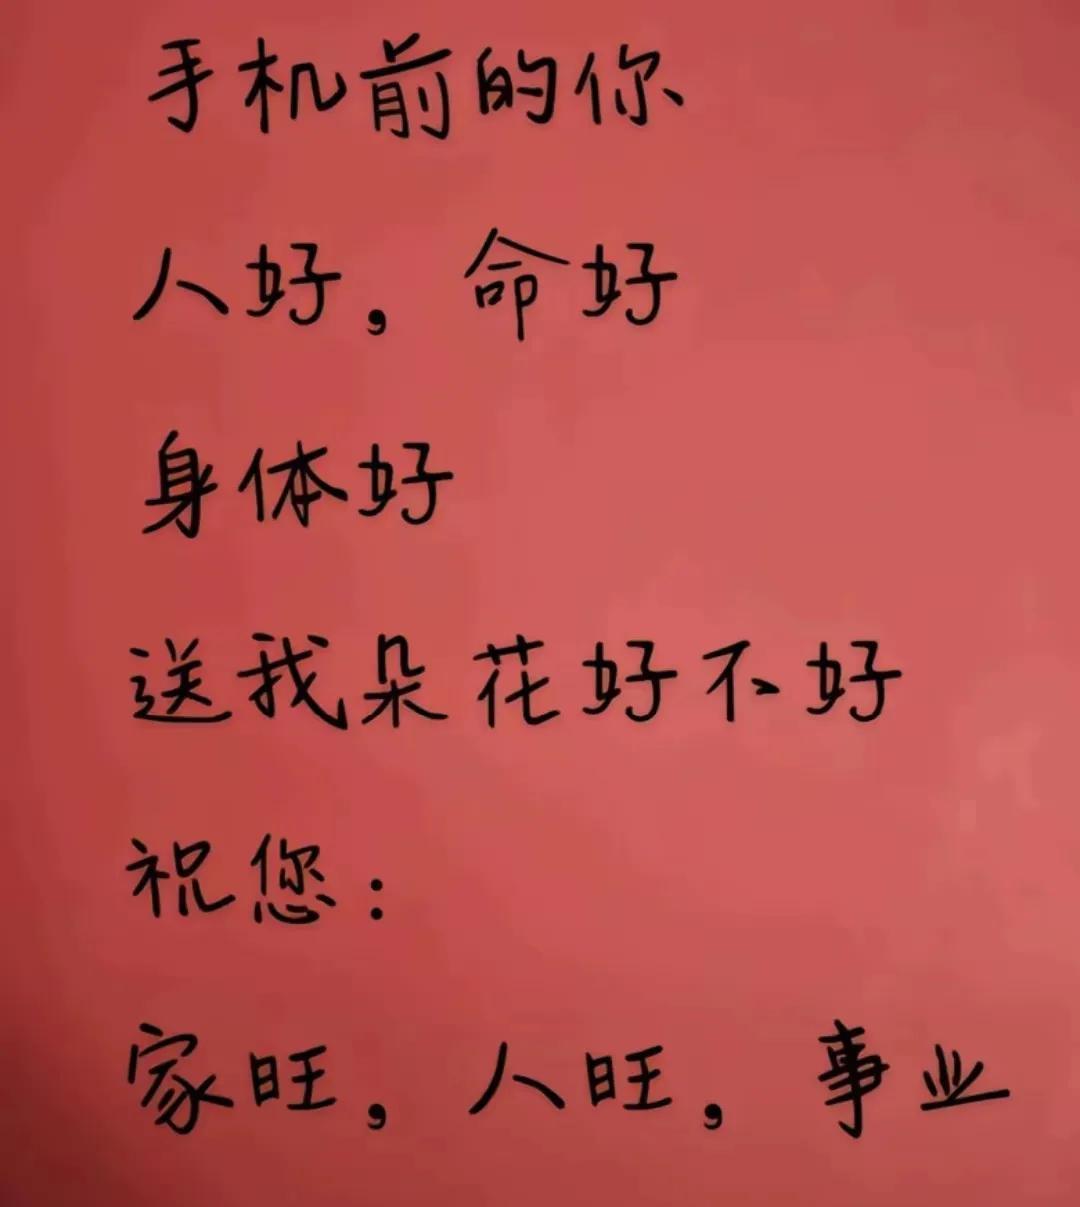 手机前的你
人好，命好
身体好
送我朵花好不好
祝您：
家旺，人旺，事业